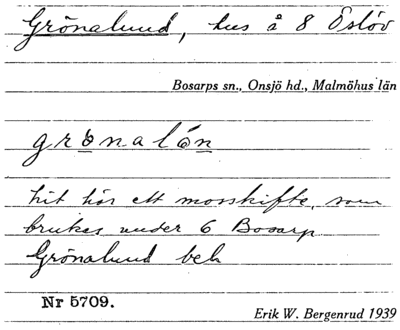 Grönalund, hus å 8 Eslöv
Bosarps sn., Onsjö hd., Malmöhus län
grònalón
hit hör ett mosskifte, som
brukes under 6 Bosarp
Grönalund bek
Nr 5709.
Erik W. Bergenrud 1939